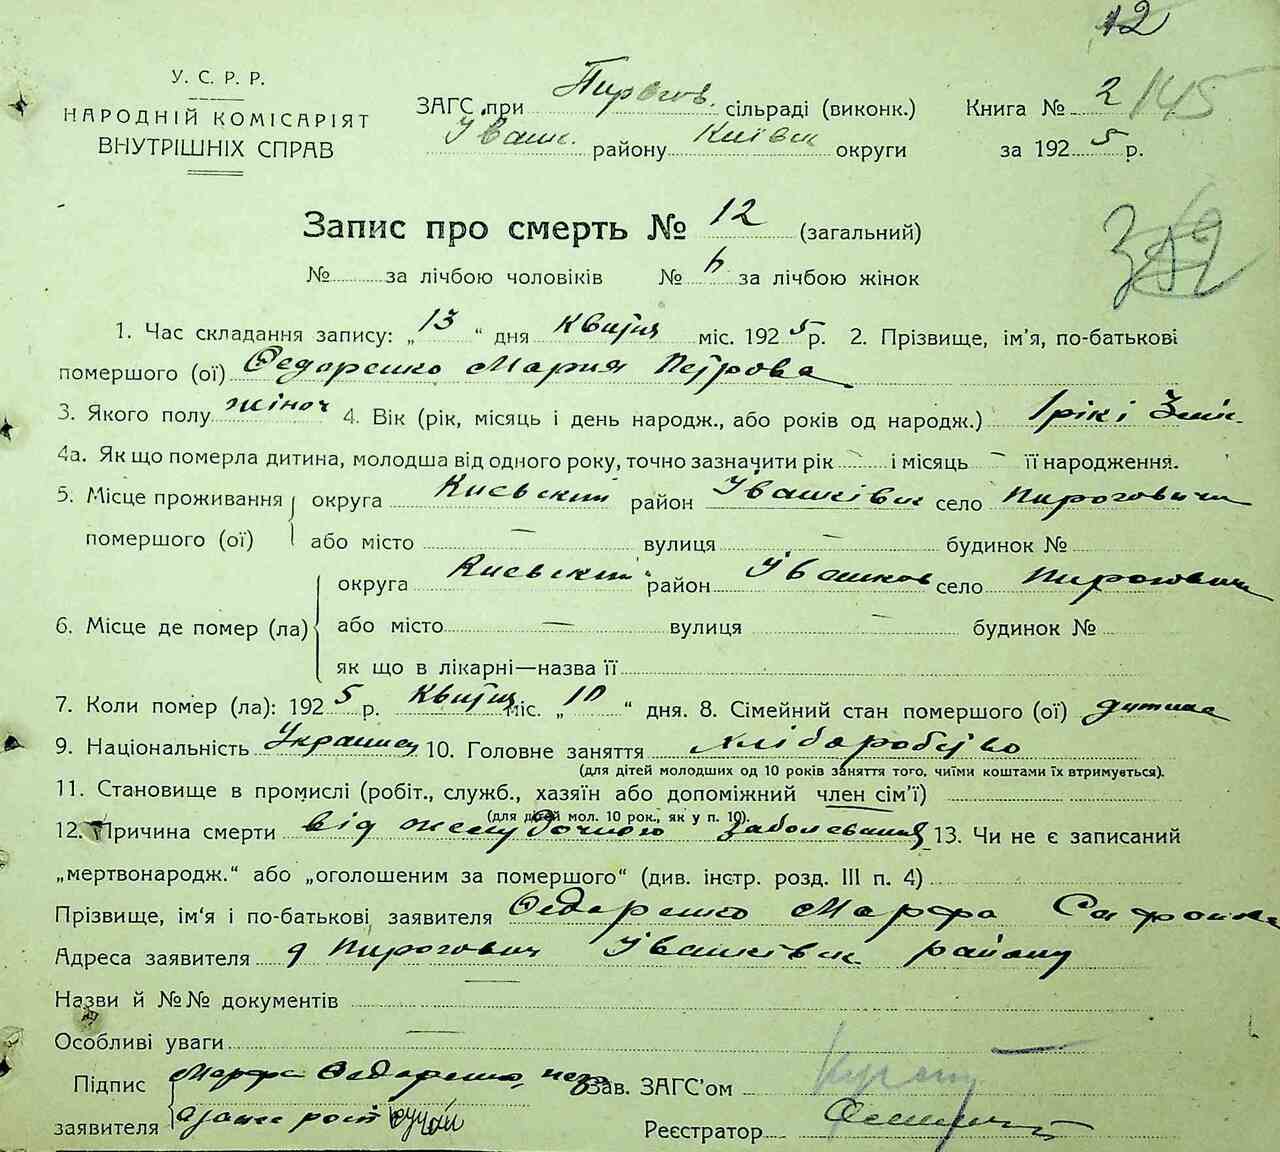 12
У. С. Р. Р.
НАРОДНІЙ КОМІСАРІЯТ
ВНУТРІШНІХ СПРАВ
ЗАГС при Пирогов. сільраді (виконк.)
Іваньк. району Київськ округи
Книга № 2 145
за 1925 р.
Запис про смерть № 12 (загальний)
№ за лічбою чоловіків № 6 за лічбою жінок
1. Час складання запису: „ 13 “ дня Квитня міс. 1925 р. 2. Прізвище, ім’я, по-батькові
помершого (ої) Федоренко Мария Петрова
3. Якого полу жіноч 4. Вік (рік, місяць і день народж., або років од народж.) 1 рік і 3 міс.
4а. Як що померла дитина, молодша від одного року, точно зазначити рік – і місяць – її народження.
5. Місце проживання округа Киевский район Іванківськ село Пироговичи
помершого (ої) або місто — вулиця — будинок №
округа Киевский район Іванков село Пирогович
6. Місце де помер (ла) або місто — вулиця – будинок №
як що в лікарні—назва її
7. Коли помер (ла): 1925 р. Квитня міс. „ 10 “ дня. 8. Сімейний стан помершого (ої) дитина
9. Національність 10. Головне заняття хлібаробство
(для дітей молодших од 10 років заняття того, чиїми коштами їх втримується).
11. Становище в промислі (робіт., служб., хазяїн або допоміжний член сім’ї)
(для дітей мол. 10 рок., як у п. 10).
12. Причина смерти від желудочного заболевания 13. Чи не є записаний
„мертвонародж.“ або „оголошеним за помершого“ (див. інстр. розд. III п. 4)
Прізвище, ім’я і по-батькові заявителя Федоренко Марфа
Адреса заявителя д Пирогович Іванківськ району
Назви й №№ документів —
Особливі уваги —
Підпис Марфа Федоренко, Зав. ЗАГС’ом
заявителя Реєстратор